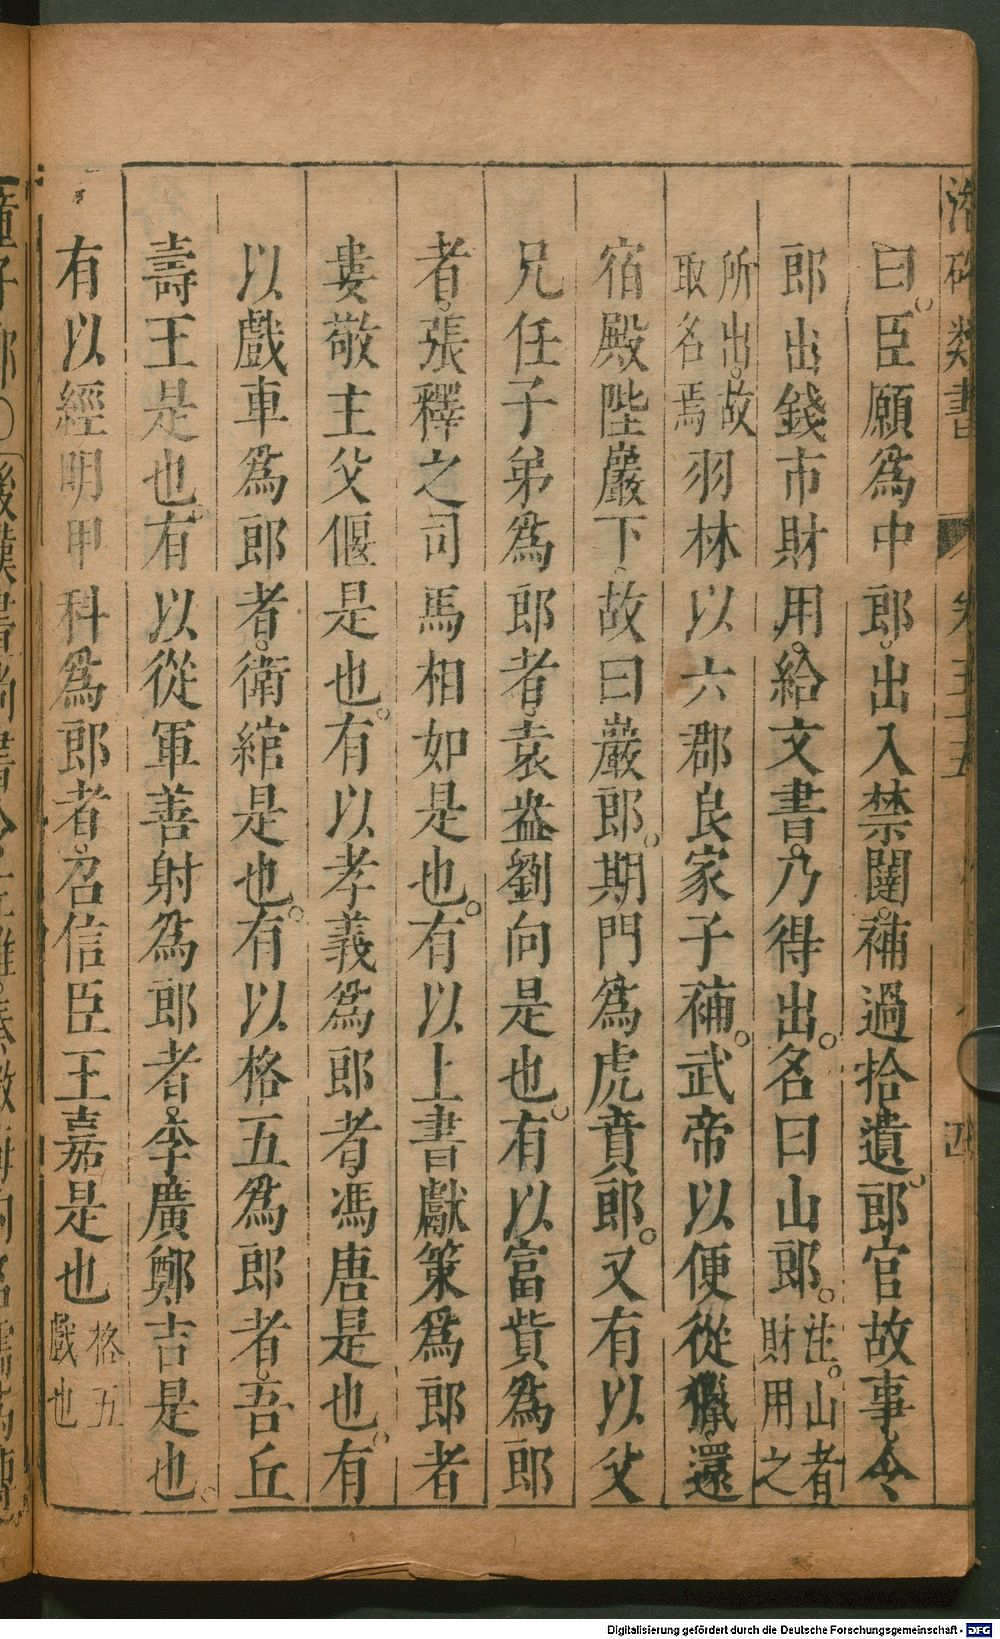 曰。臣願爲中郎。出入禁闥。補過拾遺。郎官故事。令
郎出錢市財用。給文書。乃得出。名曰山郎。注。山者財用之
所出。故取名焉羽林以六郡良家子補。武帝以便從獵。還
宿殿陛巖下。故曰巖郎。期門爲虎賁郎。又有以父
兄任子弟爲郎者。袁盎劉向是也。有以富貲爲郎
者。張釋之司馬相如是也。有以上書獻策爲郎者
婁敬主父偃是也。有以孝義爲郎者。馮唐是也。有
以戲車爲郎者。衛綰是也。有以格五爲郎者。吾丘
壽王是也。有以從軍善射爲郎者。李廣鄭吉是也。
有以經明甲科爲郎者。召信臣王嘉是也格五戲也
Digitalisierung gefördert durch die Deutsche Forschungsgemeinschaft - DFG